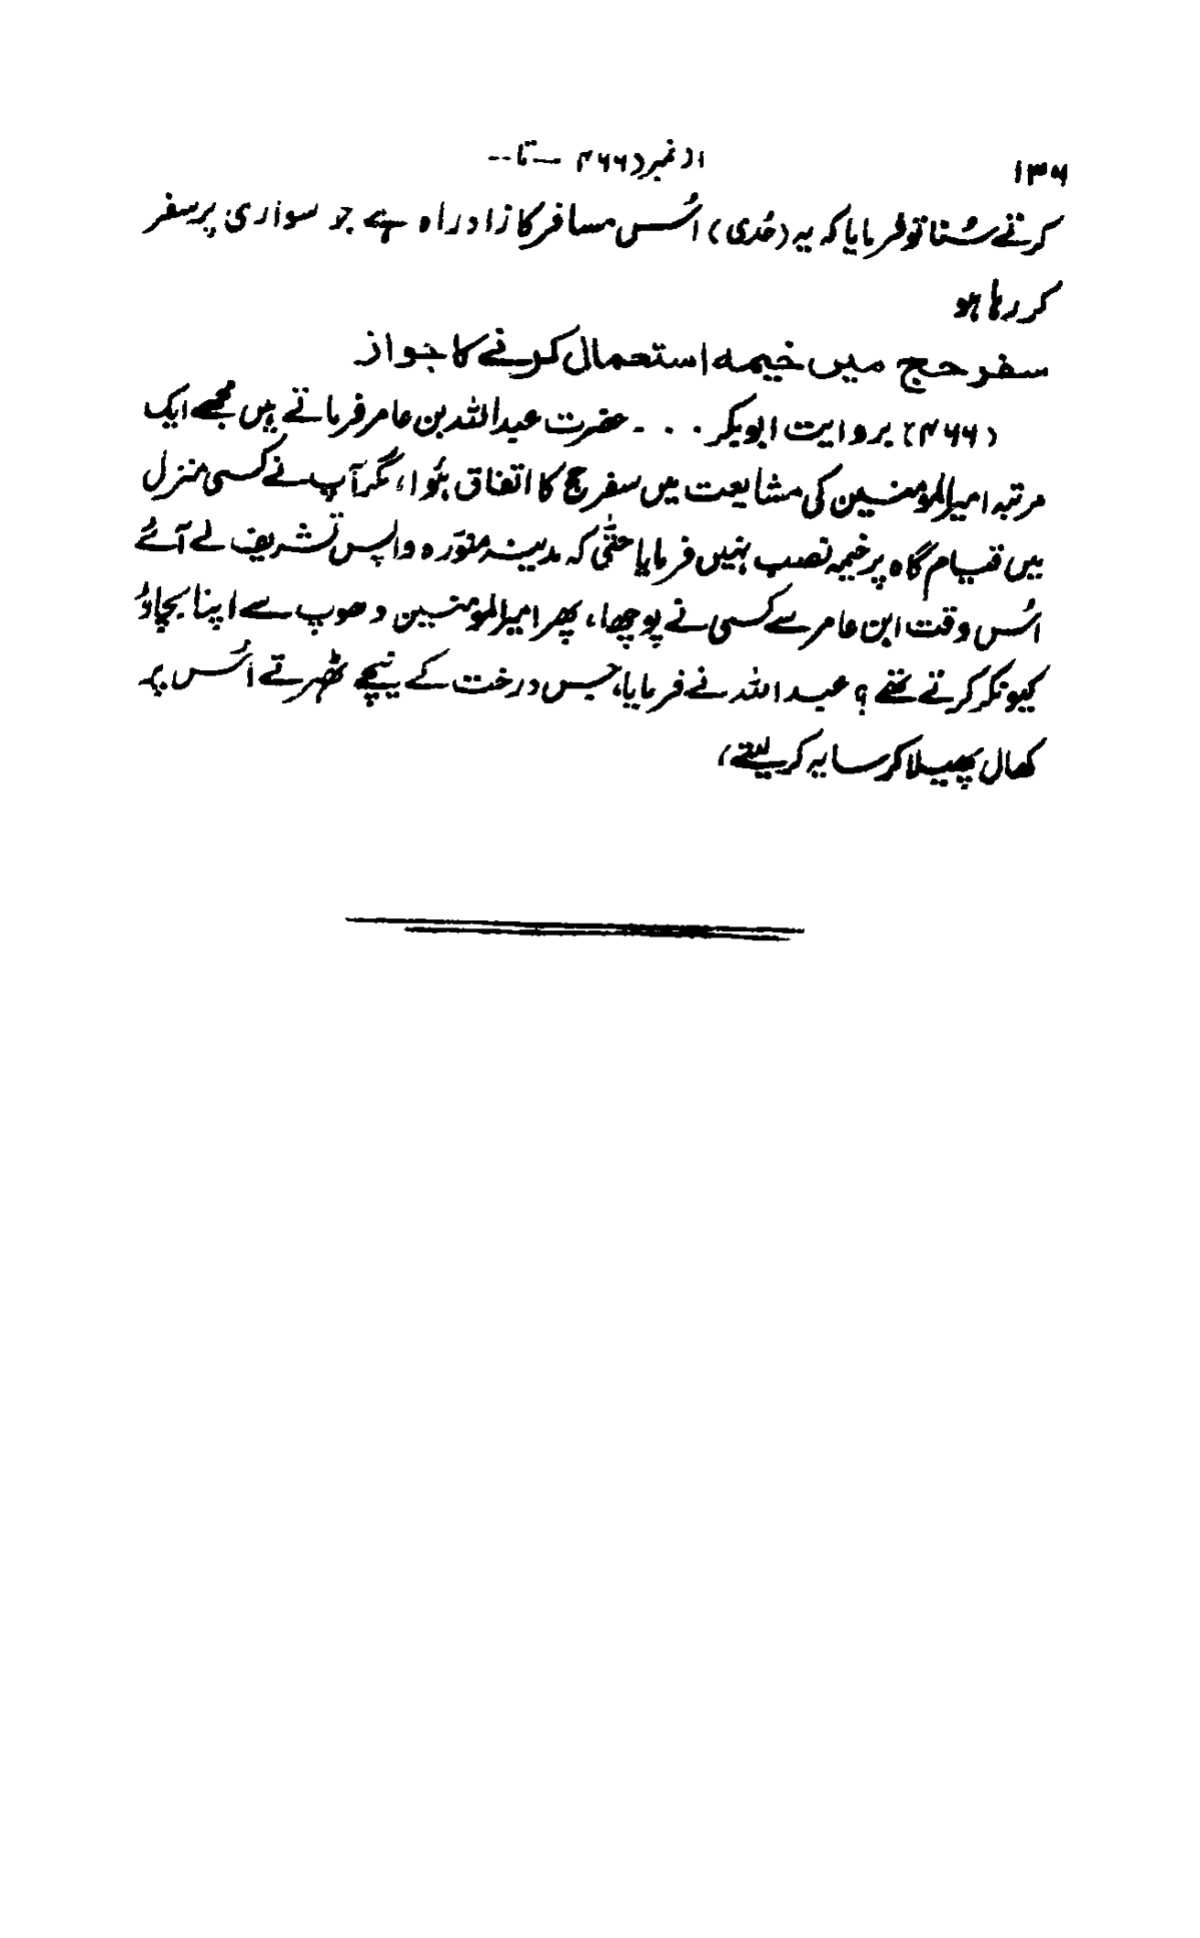 ۱۳۶
از نمبر (۴۶۶ — تا --
کرتے سُنا تو فرمایا کہ یہ (حُدی) اُس مسافر کا زادراہ ہے جو سواری پر سفر
کر رہا ہو
سفر حج میں خیمہ استعمال کرنے کا جواز
(۴۶۶) بروایت ابوبکر ۔ ۔ ۔ ۔ حضرت عبداللہ بن عامر فرماتے ہیں مجھے ایک
مرتبہ امیرالمؤمنین کی مشایعت میں سفر حج کا اتفاق ہُوا، مگر آپ نے کسی منزل
میں قیام گاہ پر خیمہ نصب نہیں فرمایا حتّٰی کہ مدینہ منوّرہ واپس تشریف لے آئے
اُس وقت ابن عامر سے کسی نے پوچھا، پھر امیرالمؤمنین دھوپ سے اپنا بچاؤ
کیونکر کرتے تھے؟ عبداللہ نے فرمایا، جس درخت کے نیچے ٹھہرتے اُس پر
کھال پھیلا کر سایہ کر لیتے،